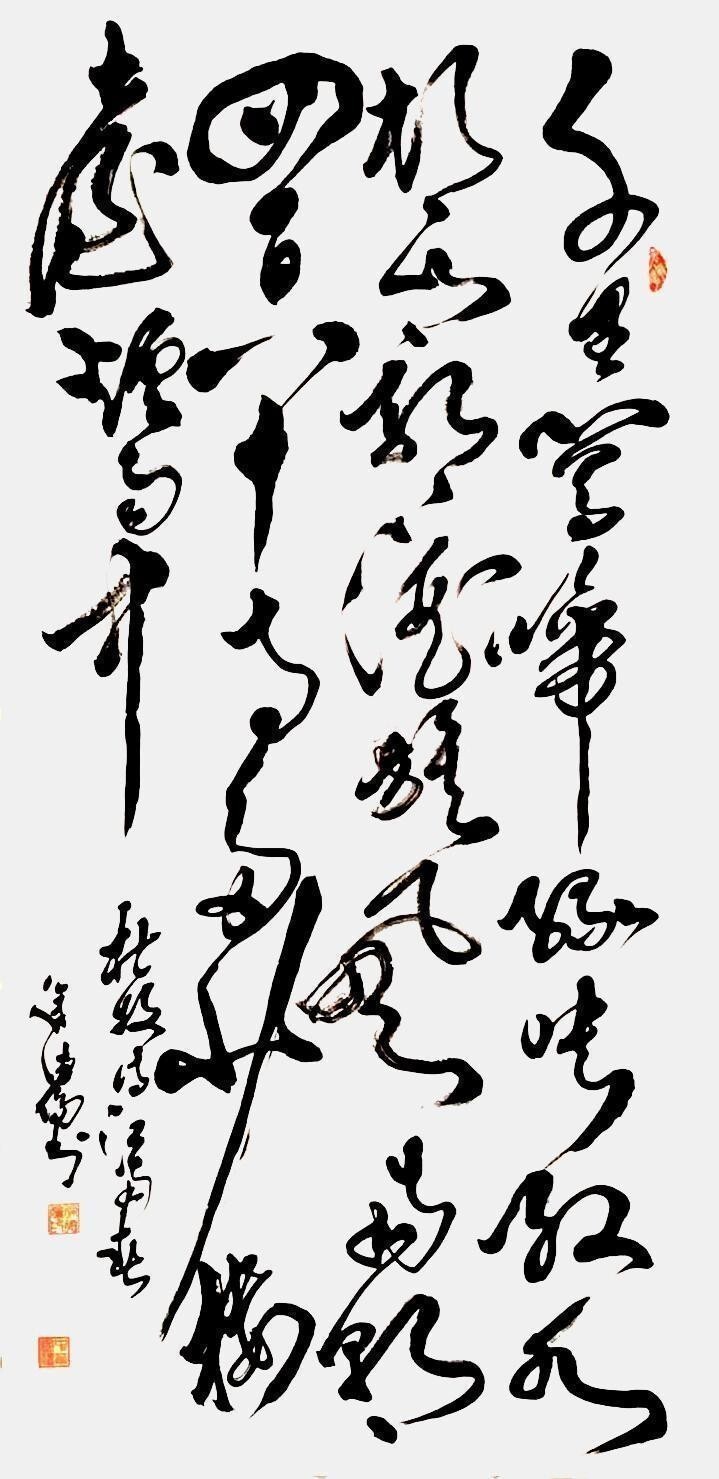 千里鶯啼綠映紅水
村山郭酒旗風南朝
四百八十寺多少樓
臺煙雨中
杜牧詩江南春
徐書